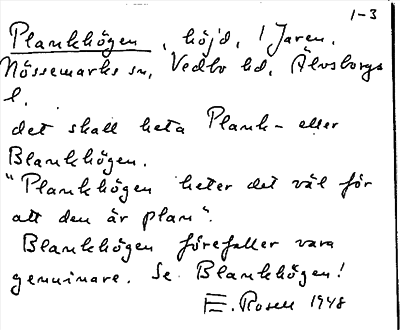 1-3
Plankhögen, höjd, i Jaren,
Nössemarks sn, Vedbo hd, Älvsborgs
l.
det skall heta Plank- eller
Blankhögen.
"Plankhögen heter det väl för
att den är plan".
Blankhögen förefaller vara
genuinare. Se Blankhögen!
E. Rosell 1948